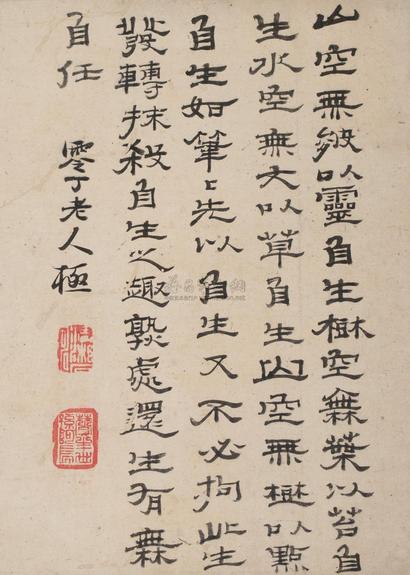 山空無皴以靈自生樹空無葉以苔自
生水空無以草自生山空無以點
自生如筆〻先以自生又不必拘此生
發轉抹殺自生之趣熟處還生有無
自任 零丁老人極